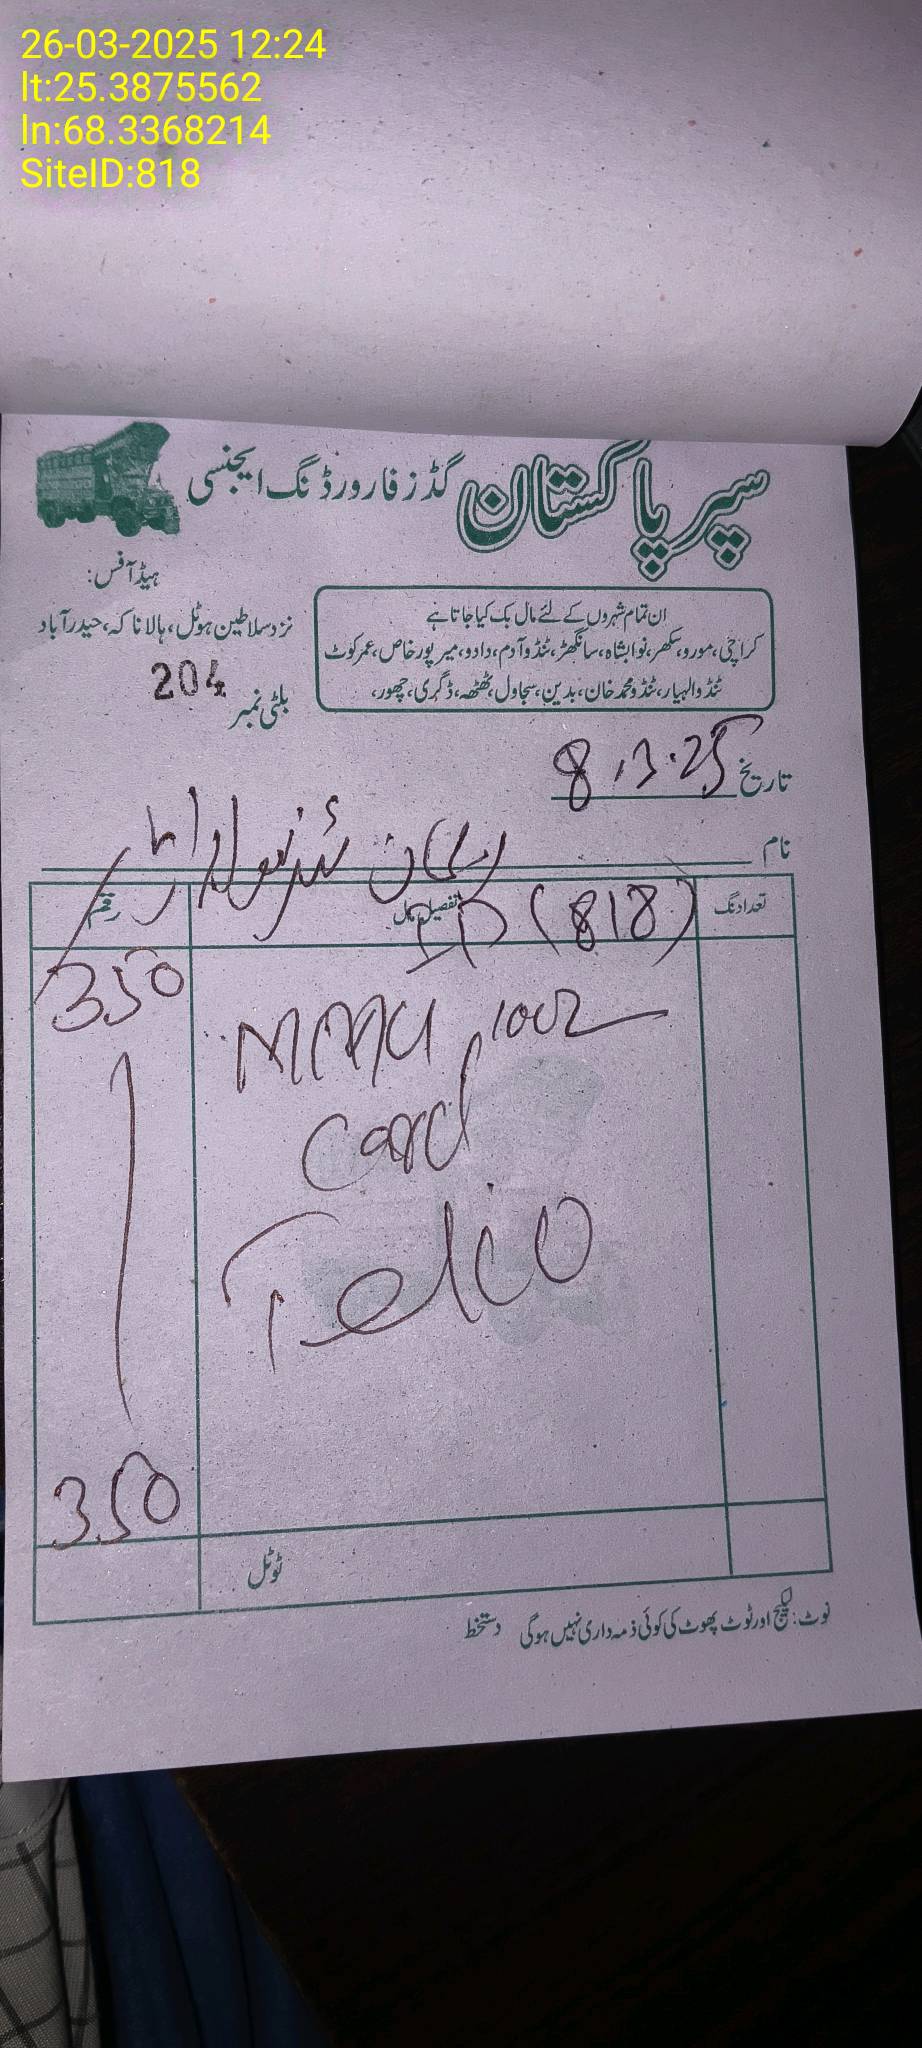 26-03-2025 12:24
lt:25.3875562
ln:68.3368214
SiteID:818
سپر پاکستان گڈز فارورڈنگ ایجنسی
ہیڈ آفس:
نزد سلاطین ہوٹل، ہالا ناکہ، حیدرآباد
ان تمام شہروں کے لئے مال بک کیا جاتا ہے
کراچی، مورو، سکھر، نوابشاہ، سانگھڑ، ٹنڈو آدم، دادو، میرپورخاص، عمرکوٹ
ٹنڈوالہیار، ٹنڈو محمد خان، بدین، سجاول، ٹھٹھہ، ڈگری، جھور،
بلٹی نمبر 204
تاریخ 8.3.25
نام
تعداد نگ تفصیل مال رقم
ID (818)
350
card
Telco
350
ٹوٹل
نوٹ: لیکیج اور ٹوٹ پھوٹ کی کوئی ذمہ داری نہیں ہوگی دستخط